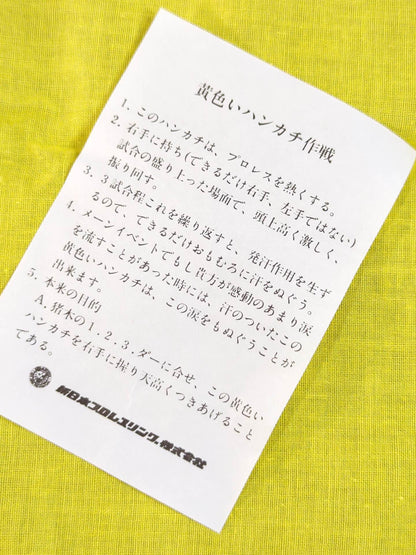 黄色いハンカチ作戦
1. このハンカチは、プロレスを熱くする。
2. 右手に持ち(できるだけ右手、左手ではない)
試合の盛り上った場面で、頭上高く激しく、
振り回す。
3. 3試合程これを繰り返すと、発汗作用を生ず
るので、できるだけおもむろに汗をぬぐう。
4. メーンイベントでもし貴方が感動のあまり涙
を流すことがあった時には、汗のついたこの
黄色いハンカチは、この涙をもぬぐうことが
出来ます。
5. 本来の目的
A. 猪木の1. 2. 3. ダーに合せ、この黄色い
ハンカチを右手に握り天高くつきあげること
である。
新日本プロレスリング株式会社